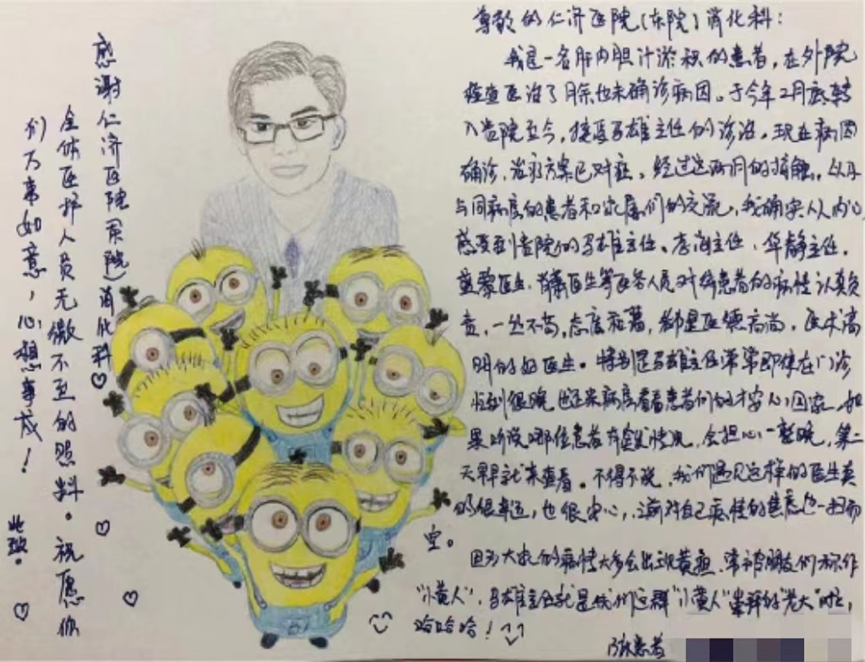 感谢仁济医院东院消化科♡
全体医护人员无微不至的照料。祝愿你
们万事如意，心想事成！
此致。
尊敬的仁济医院(东院)消化科：
我是一名肝内胆汁淤积的患者，在外院
检查医治了月余也未确诊病因。于今年2月底转
入贵院至今，接受马雄主任的诊治，现在病因
确诊，治疗方案已对症。经过这两周的接触，以及
与同病房的患者和家属们的交流，我确实从内心
感受到贵院的马雄主任、李海主任、华静主任、
医生、肖萧医生等医务人员对待患者的病情认真负
责，一丝不苟，态度和蔼，都是医德高尚，医术高
明的好医生。特别是马雄主任常常即使在门诊
忙到很晚也还来病房看看患者们的才安心回家，如
果听说哪位患者有突发情况，会担心一整晚，第二
天早早就来查看。不得不说，我们遇见这样的医生真
的很幸运，也很安心，之前对自己病情的焦虑也一扫而
空。
因为大家的病情大多会出现黄疸，常被朋友们称作
"小黄人"，马雄主任就是我们这群"小黄人"崇拜的"老大"啦，
哈哈哈！
患者